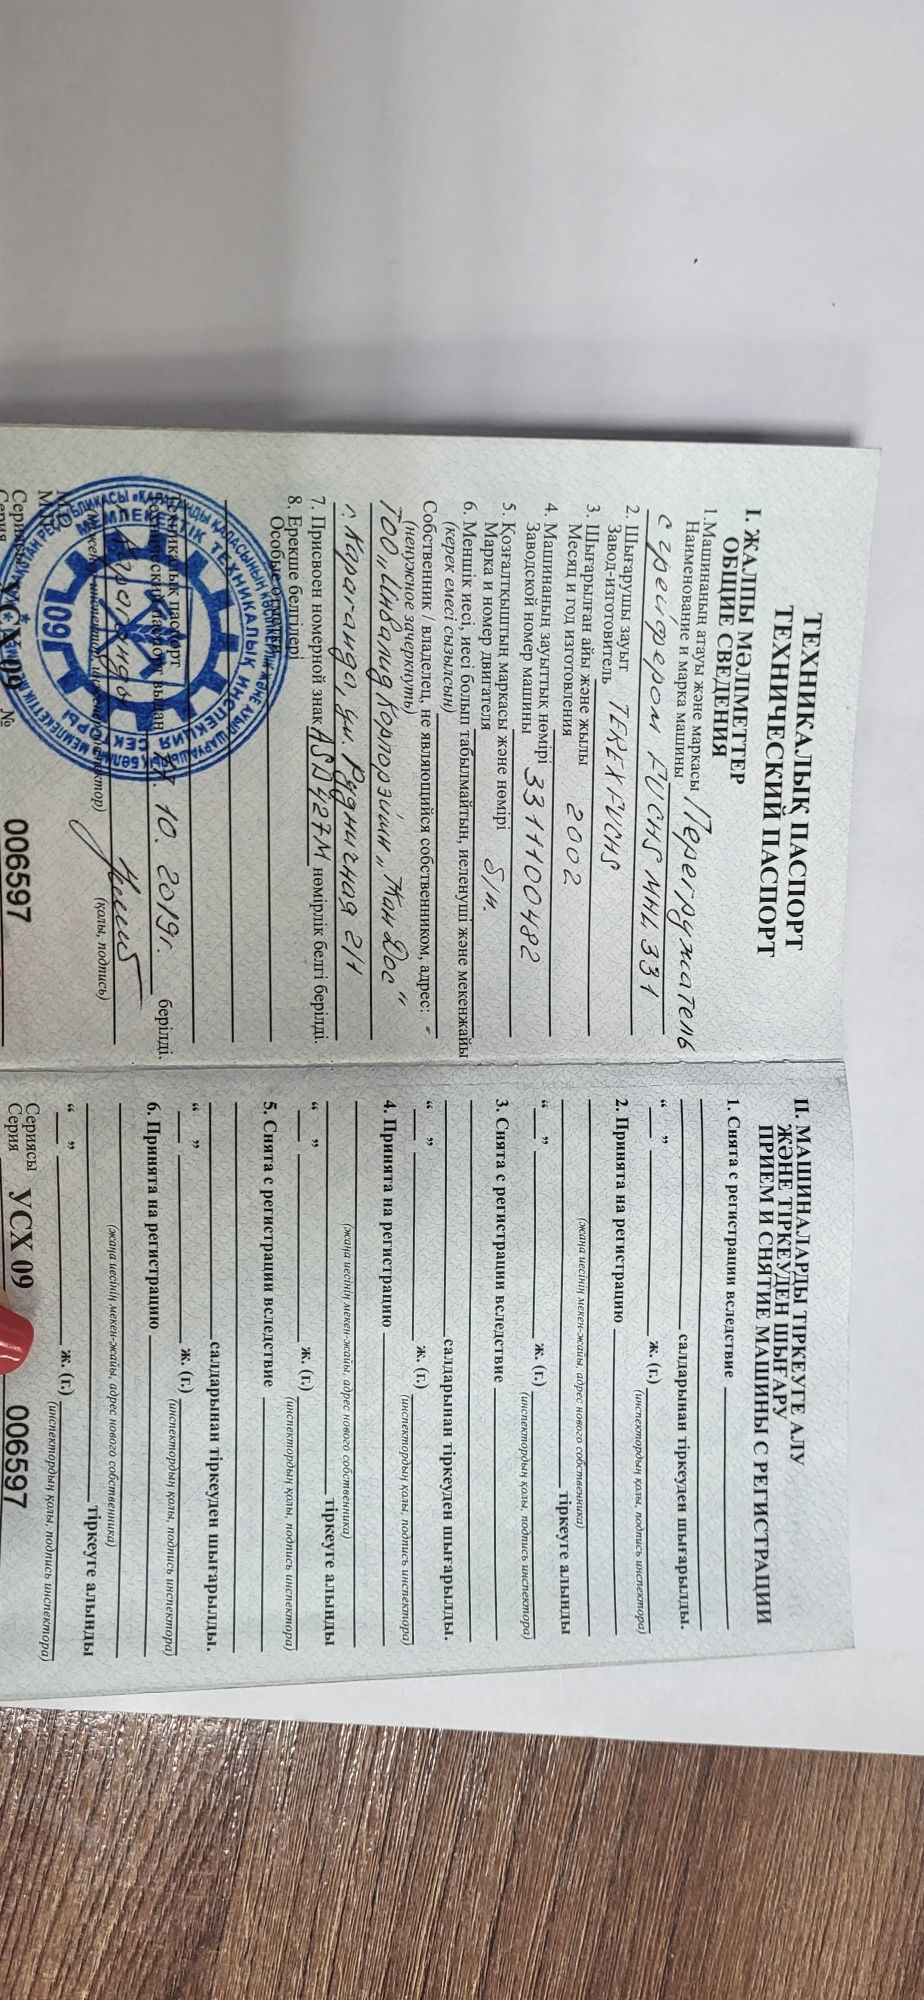 ТЕХНИКАЛЫҚ ПАСПОРТ
ТЕХНИЧЕСКИЙ ПАСПОРТ
I. ЖАЛПЫ МӘЛМЕТТЕР
ОБЩИЕ СВЕДЕНИЯ
1.Машинаның атауы және маркасы
Наименование и марка машины Перегружатель
с грейфером FUCHS MHL 331
2. Шығарушы зауыт
Завод-изготовитель TEREXFUCHS
3. Шығарылған айы және жылы
Месяц и год изготовления 2002
4. Машинаның зауыттық нөмірі
Заводской номер машины 3311100482
5. Қозғалтқыштың маркасы және нөмірі
Марка и номер двигателя б/н.
6. Меншік иесі, иесі болып табылмайтын, иеленуші және мекенжайы
(керек емесі сызылсын)
Собственник / владелец, не являющийся собственником, адрес:
(ненужное зачеркнуть)
ТОО „Инвалид Корпорэйшн „Жан Дос“
г. Караганда, ул. Рудничная 2/1
7. Присвоен номерной знак ASD427M нөмірлік белгі берілді.
8. Ерекше белгілері
Особые отметки
Техникалық паспорт
Технический паспорт выдан 10. 2019г. берілді.
г. Караганды
(қолы, подпись)
Сериясы
Серия УСХ 09 № 006597
МЕМЛЕКЕТТІК ТЕХНИКАЛЫҚ ИНСПЕКЦИЯ СЕКТОРЫ
09
II. МАШИНАЛАРДЫ ТІРКЕУГЕ АЛУ
ЖӘНЕ ТІРКЕУДЕН ШЫҒАРУ
ПРИЕМ И СНЯТИЕ МАШИНЫ С РЕГИСТРАЦИИ
1. Снята с регистрации вследствие
салдарынан тіркеуден шығарылды.
“ ” ж. (г.)
(инспектордың қолы, подпись инспектора)
2. Принята на регистрацию
(жаңа иесінің мекен-жайы, адрес нового собственника)
тіркеуге алынды
“ ” ж. (г.)
(инспектордың қолы, подпись инспектора)
3. Снята с регистрации вследствие
салдарынан тіркеуден шығарылды.
“ ” ж. (г.)
(инспектордың қолы, подпись инспектора)
4. Принята на регистрацию
(жаңа иесінің мекен-жайы, адрес нового собственника)
тіркеуге алынды
“ ” ж. (г.)
(инспектордың қолы, подпись инспектора)
5. Снята с регистрации вследствие
салдарынан тіркеуден шығарылды.
“ ” ж. (г.)
(инспектордың қолы, подпись инспектора)
6. Принята на регистрацию
(жаңа иесінің мекен-жайы, адрес нового собственника)
тіркеуге алынды
“ ” ж. (г.)
(инспектордың қолы, подпись инспектора)
Сериясы
Серия УСХ 09 006597